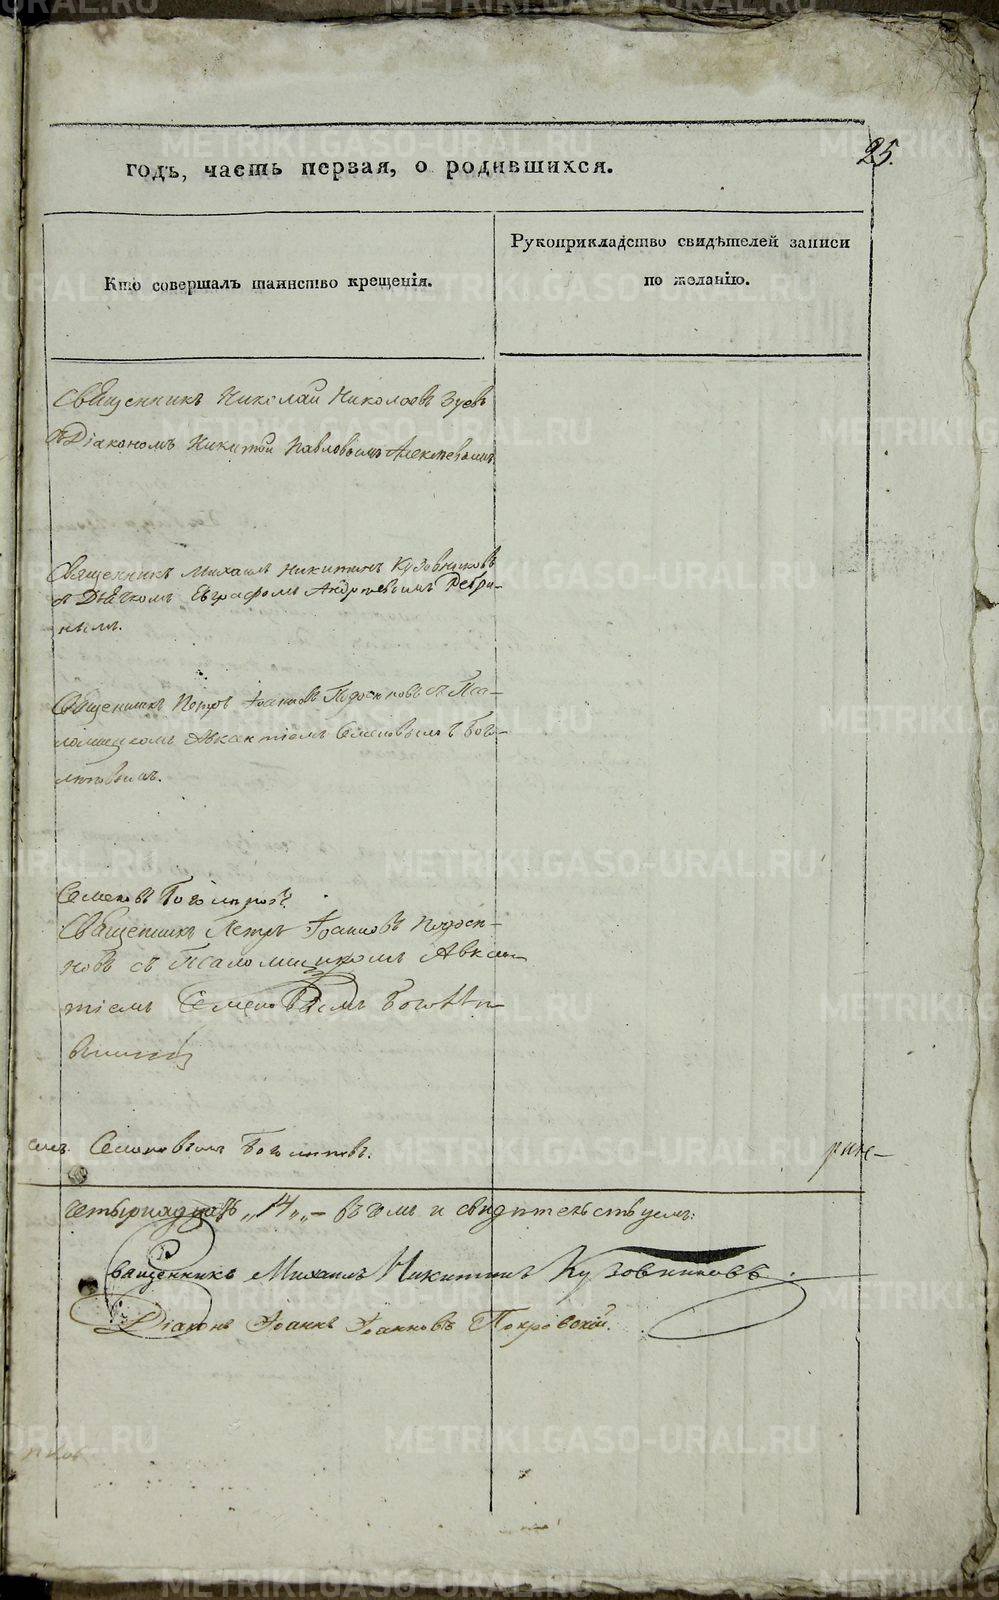 25.
годъ, часть первая, о родившихся.
Кто совершалъ таинство крещенія.
Рукоприкладство свидѣтелей записи
по желанію.
Священникъ Николай Николаевъ Зуевъ
съ Діакономъ Никитой Павловымъ Алексѣевымъ
Священникъ Михаилъ Никитинъ Кузовниковъ
съ Дьячкомъ Евграфомъ Андреевымъ Ребри-
нымъ.
Священникъ Петръ Іоанновъ съ Пса-
ломщикомъ Авксентіемъ Семеновымъ Бого-
любовымъ.
Семеновъ
Священникъ Петръ Іоанновъ
новъ съ Псаломщикомъ Авксен-
тіемъ Семеновымъ
Семеновымъ
четырнадцать „14„ – въ томъ и свидѣтельствуемъ:
Священникъ Михаилъ Никитинъ Кузовниковъ.
Діаконъ Іоаннъ Іоанновъ Покровскій.
METRIKI.GASO-URAL.RU